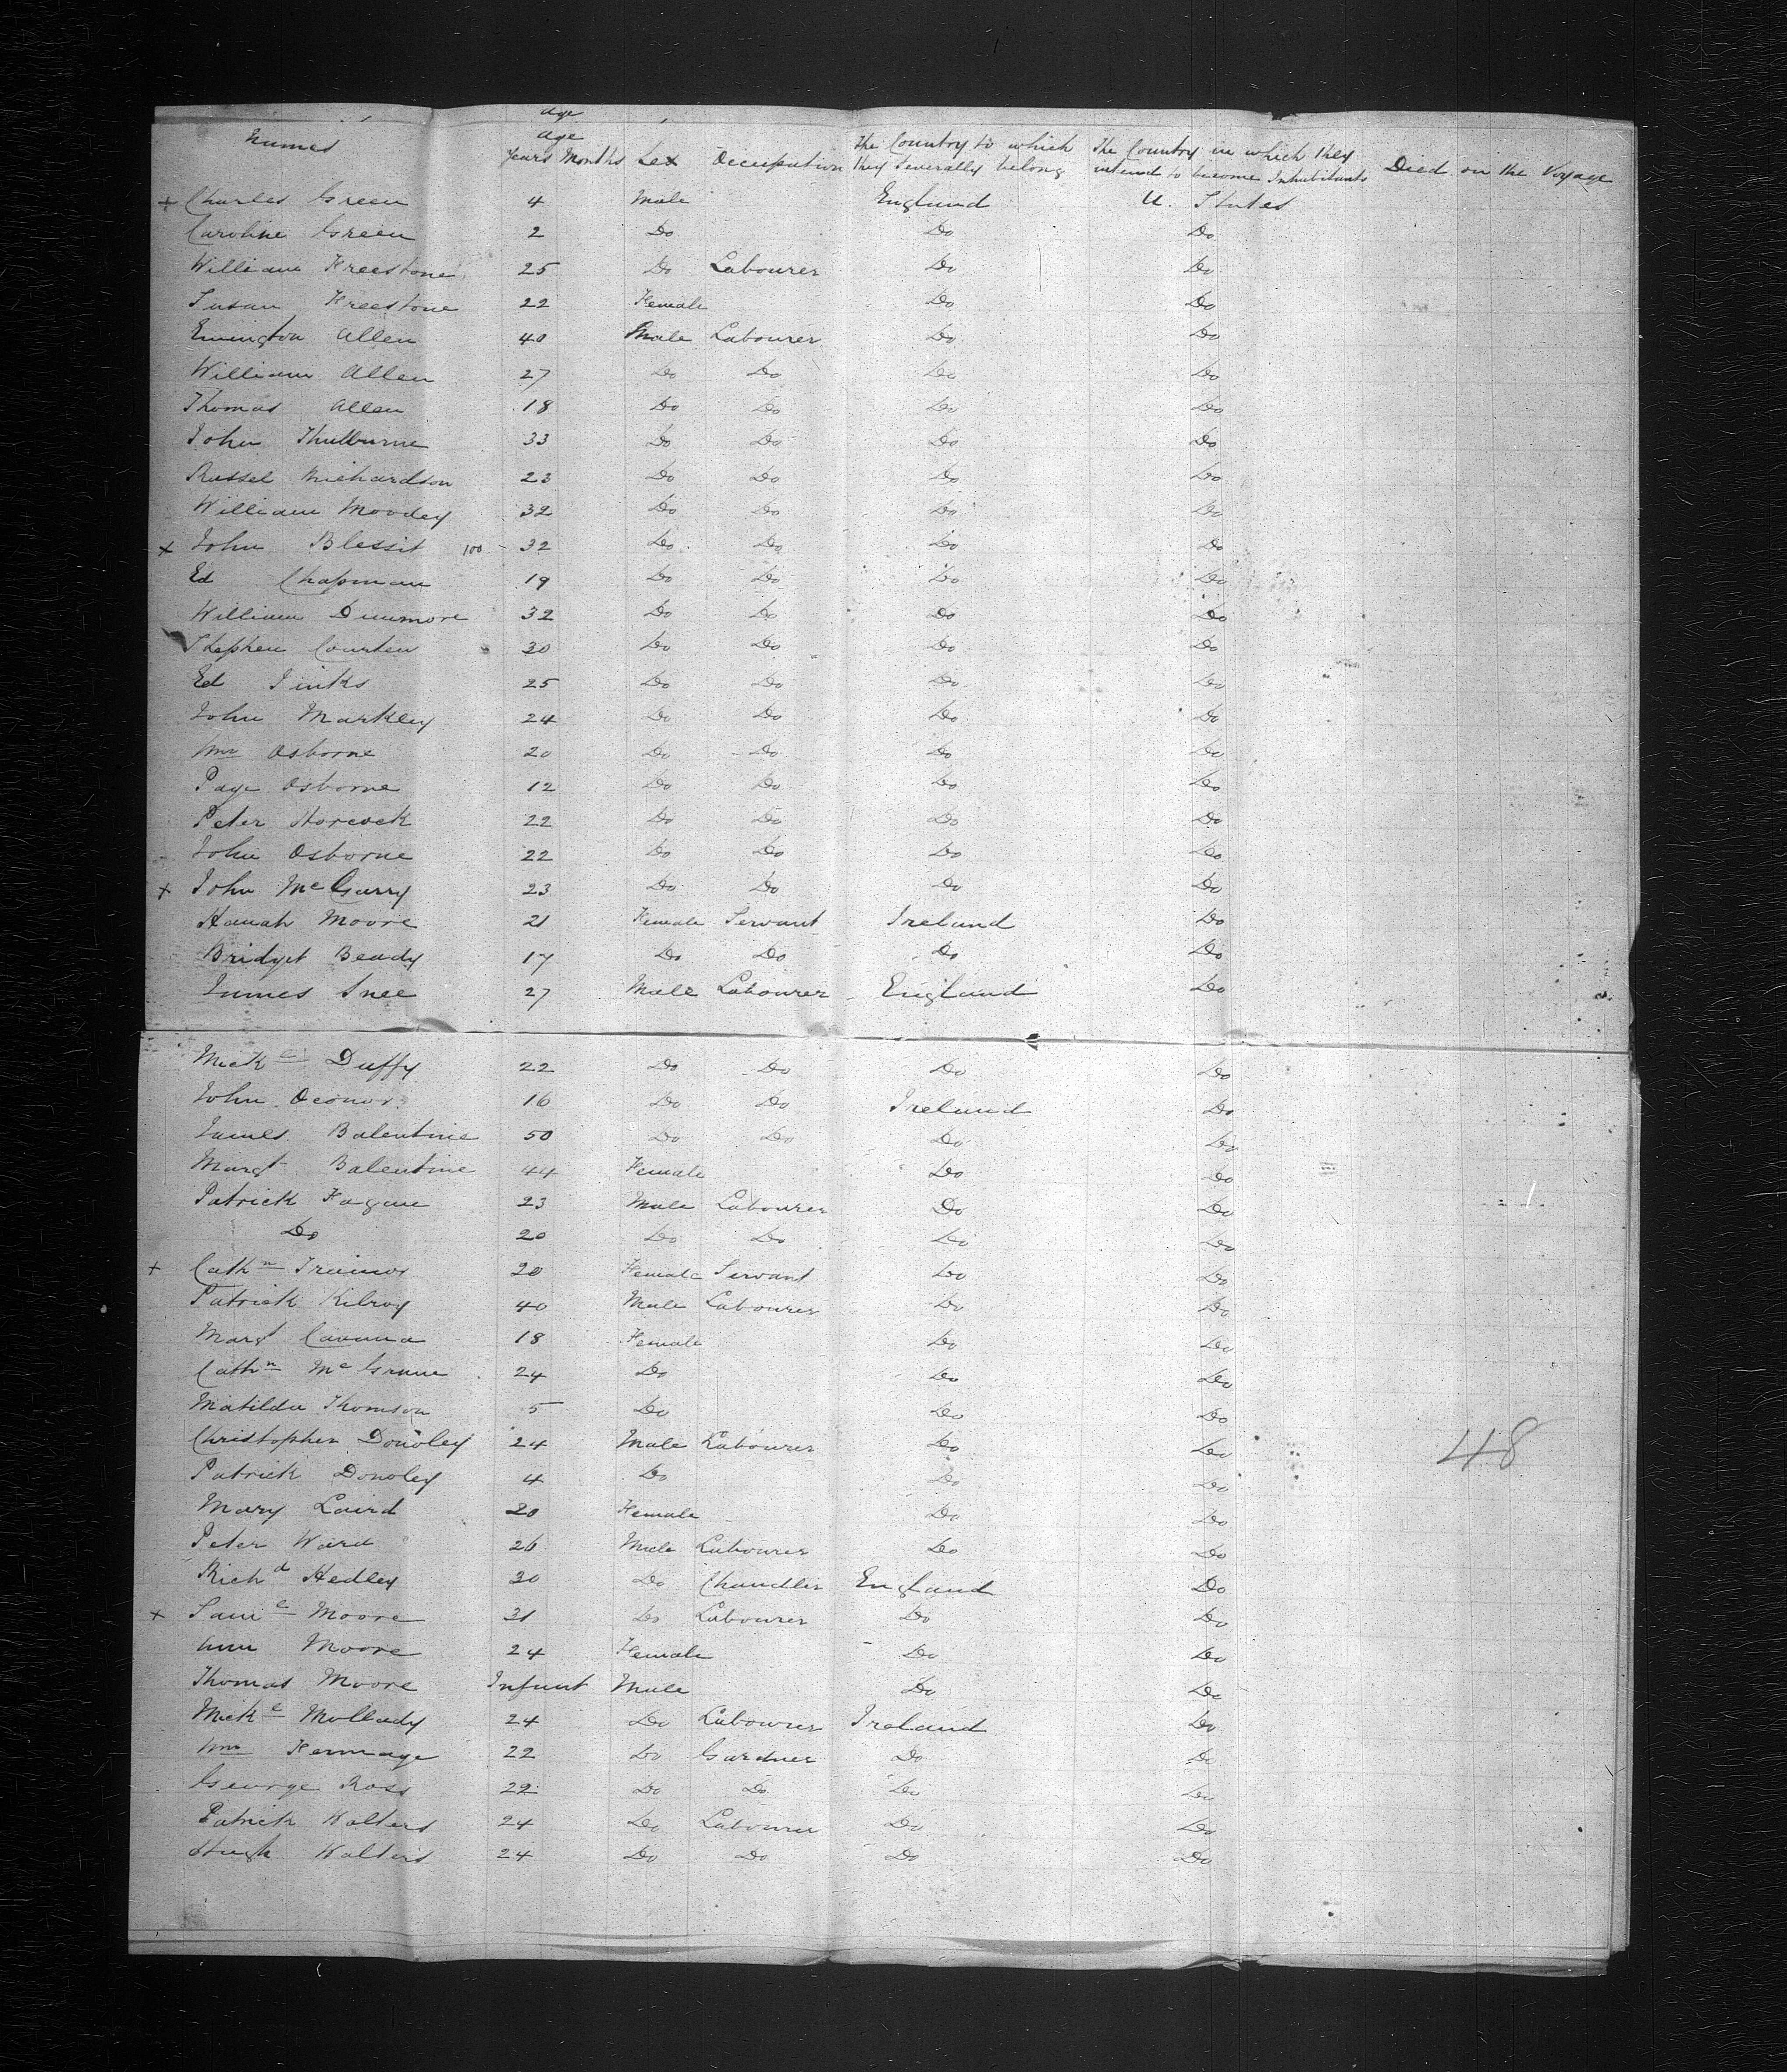 age
Names age
Years Months Sex Occupation The Country to which they severally belong The Country in which they intend to become Inhabitants Died on the Voyage
+ Charles Green 4 Male England U. States
Caroline Green 2 Do Do Do
William Freestone 25 Do Labourer Do Do
Susan Freestone 22 Female Do Do
Emington Allen 40 Male Labourer Do Do
William Allen 27 Do Do Do Do
Thomas Allen 18 Do Do Do Do
John Thulburne 33 Do Do Do Do
Russel Richardson 23 Do Do Do Do
William Moodey 32 Do Do Do Do
x John Blessit 100 - 32 Do Do Do Do
Ed Chapman 19 Do Do Do Do
William Dunmore 32 Do Do Do Do
Stephen Courten 30 Do Do Do Do
Ed Jinks 25 Do Do Do Do
John Markley 24 Do Do Do Do
Wm Osborne 20 Do Do Do Do
Page Osborne 12 Do Do Do Do
Peter Horcock 22 Do Do Do Do
John Osborne 22 Do Do Do Do
x John McGarry 23 Do Do Do Do
Hanah Moore 21 Female Servant Ireland Do
Bridget Beady 17 Do Do Do Do
James Snee 27 Male Labourer England Do
Micke Duffy 22 Do Do Do Do
John Oconor 16 Do Do Ireland Do
James Balentine 50 Do Do Do Do
Margt Balentine 44 Female Do Do
Patrick Fagan 23 Male Labourer Do Do
Do 20 Do Do Do Do
+ Cathn Trainor 20 Female Servant Do Do
Patrick Kilroy 40 Male Labourer Do Do
Margt Cavana 18 Female Do Do
Cathn McGrane 24 Do Do Do
Matilda Thomson 5 Do Do Do
Christopher Donoley 24 Male Labourer Do Do
48
Patrick Donoley 4 Do Do Do
Mary Laird 20 Female Do Do
Peter Ward 26 Male Labourer Do Do
Richd Hedley 30 Do Chandler England Do
+ Saml Moore 31 Do Labourer Do Do
Ann Moore 24 Female Do Do
Thomas Moore Infant Male Do Do
Micke Mollady 24 Do Labourer Ireland Do
Wm Fermage 22 Do Gardner Do Do
George Ross 22 Do Do Do Do
Patrick Walters 24 Do Labourer Do Do
Hugh Walters 24 Do Do Do Do